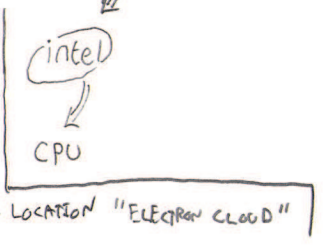 intel
CPU
LOCATION "ELECTRON CLOUD"